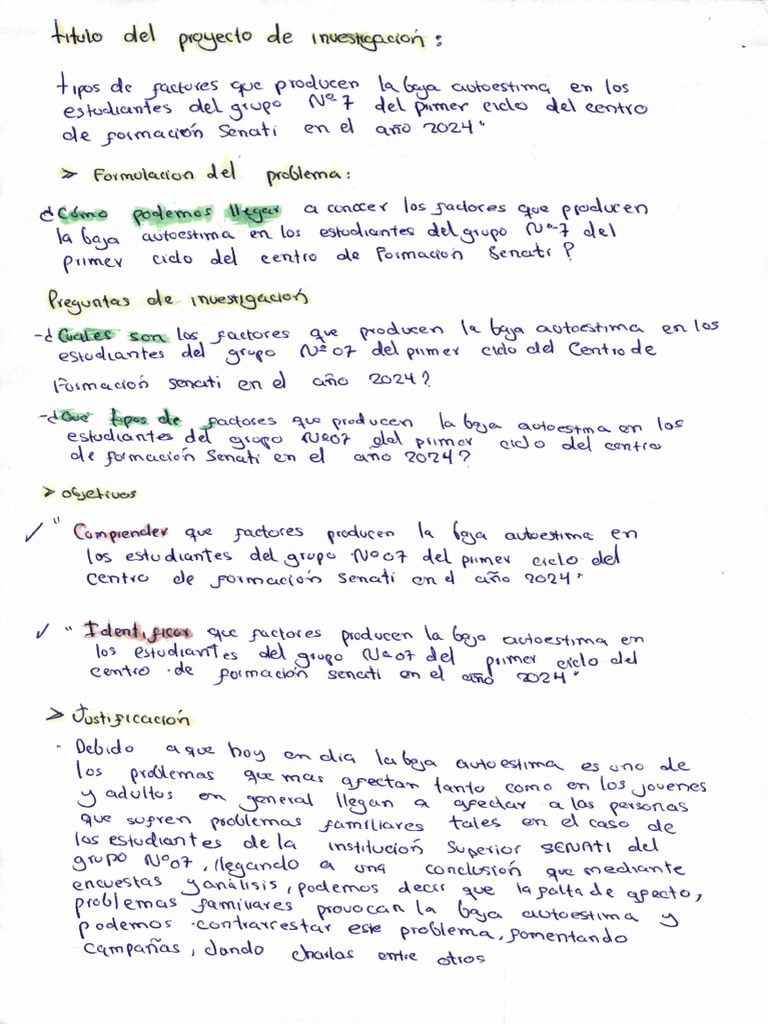 titulo del proyecto de investigación:
tipos de factores que producen la baja autoestima en los
estudiantes del grupo Nº 7 del primer ciclo del centro
de formación Senati en el año 2024"
> Formulacion del problema:
¿Cómo podemos llegar a conocer los factores que producen
la baja autoestima en los estudiantes del grupo Nº-7 del
primer ciclo del centro de Formación Senati?
Preguntas de investigación
-¿Cuales son los factores que producen la baja autoestima en los
estudiantes del grupo Nº 07 del primer ciclo del Centro de
Formación senati en el año 2024?
-¿Qué tipos de factores que producen la baja autoestma en los
estudiantes del grupo Nº07 del primer ciclo del centro
de formación Senati en el año 2024?
> objetivos
✓ " Comprender que factores producen la baja autoestima en
los estudiantes del grupo Nº07 del primer ciclo del
centro de formación senati en el año 2024"
✓ " Identificar que factores producen la baja autoestima en
los estudiantes del grupo Nº07 del primer ciclo del
centro de formación senati en el año 2024"
> Justificación
· Debido a que hoy en dia la baja autoestima es uno de
los problemas que mas afectan tanto como en los jovenes
y adultos en general llegan a afectar a las personas
que sufren problemas familiares tales en el caso de
los estudiantes de la institución Superior SENATI del
grupo Nº07, llegando a una conclusión que mediante
encuestas y análisis, podemos decir que la falta de afecto,
problemas familiares provocan la baja autoestima y
podemos contrarrestar este problema, fomentando
campañas, dando charlas entre otros